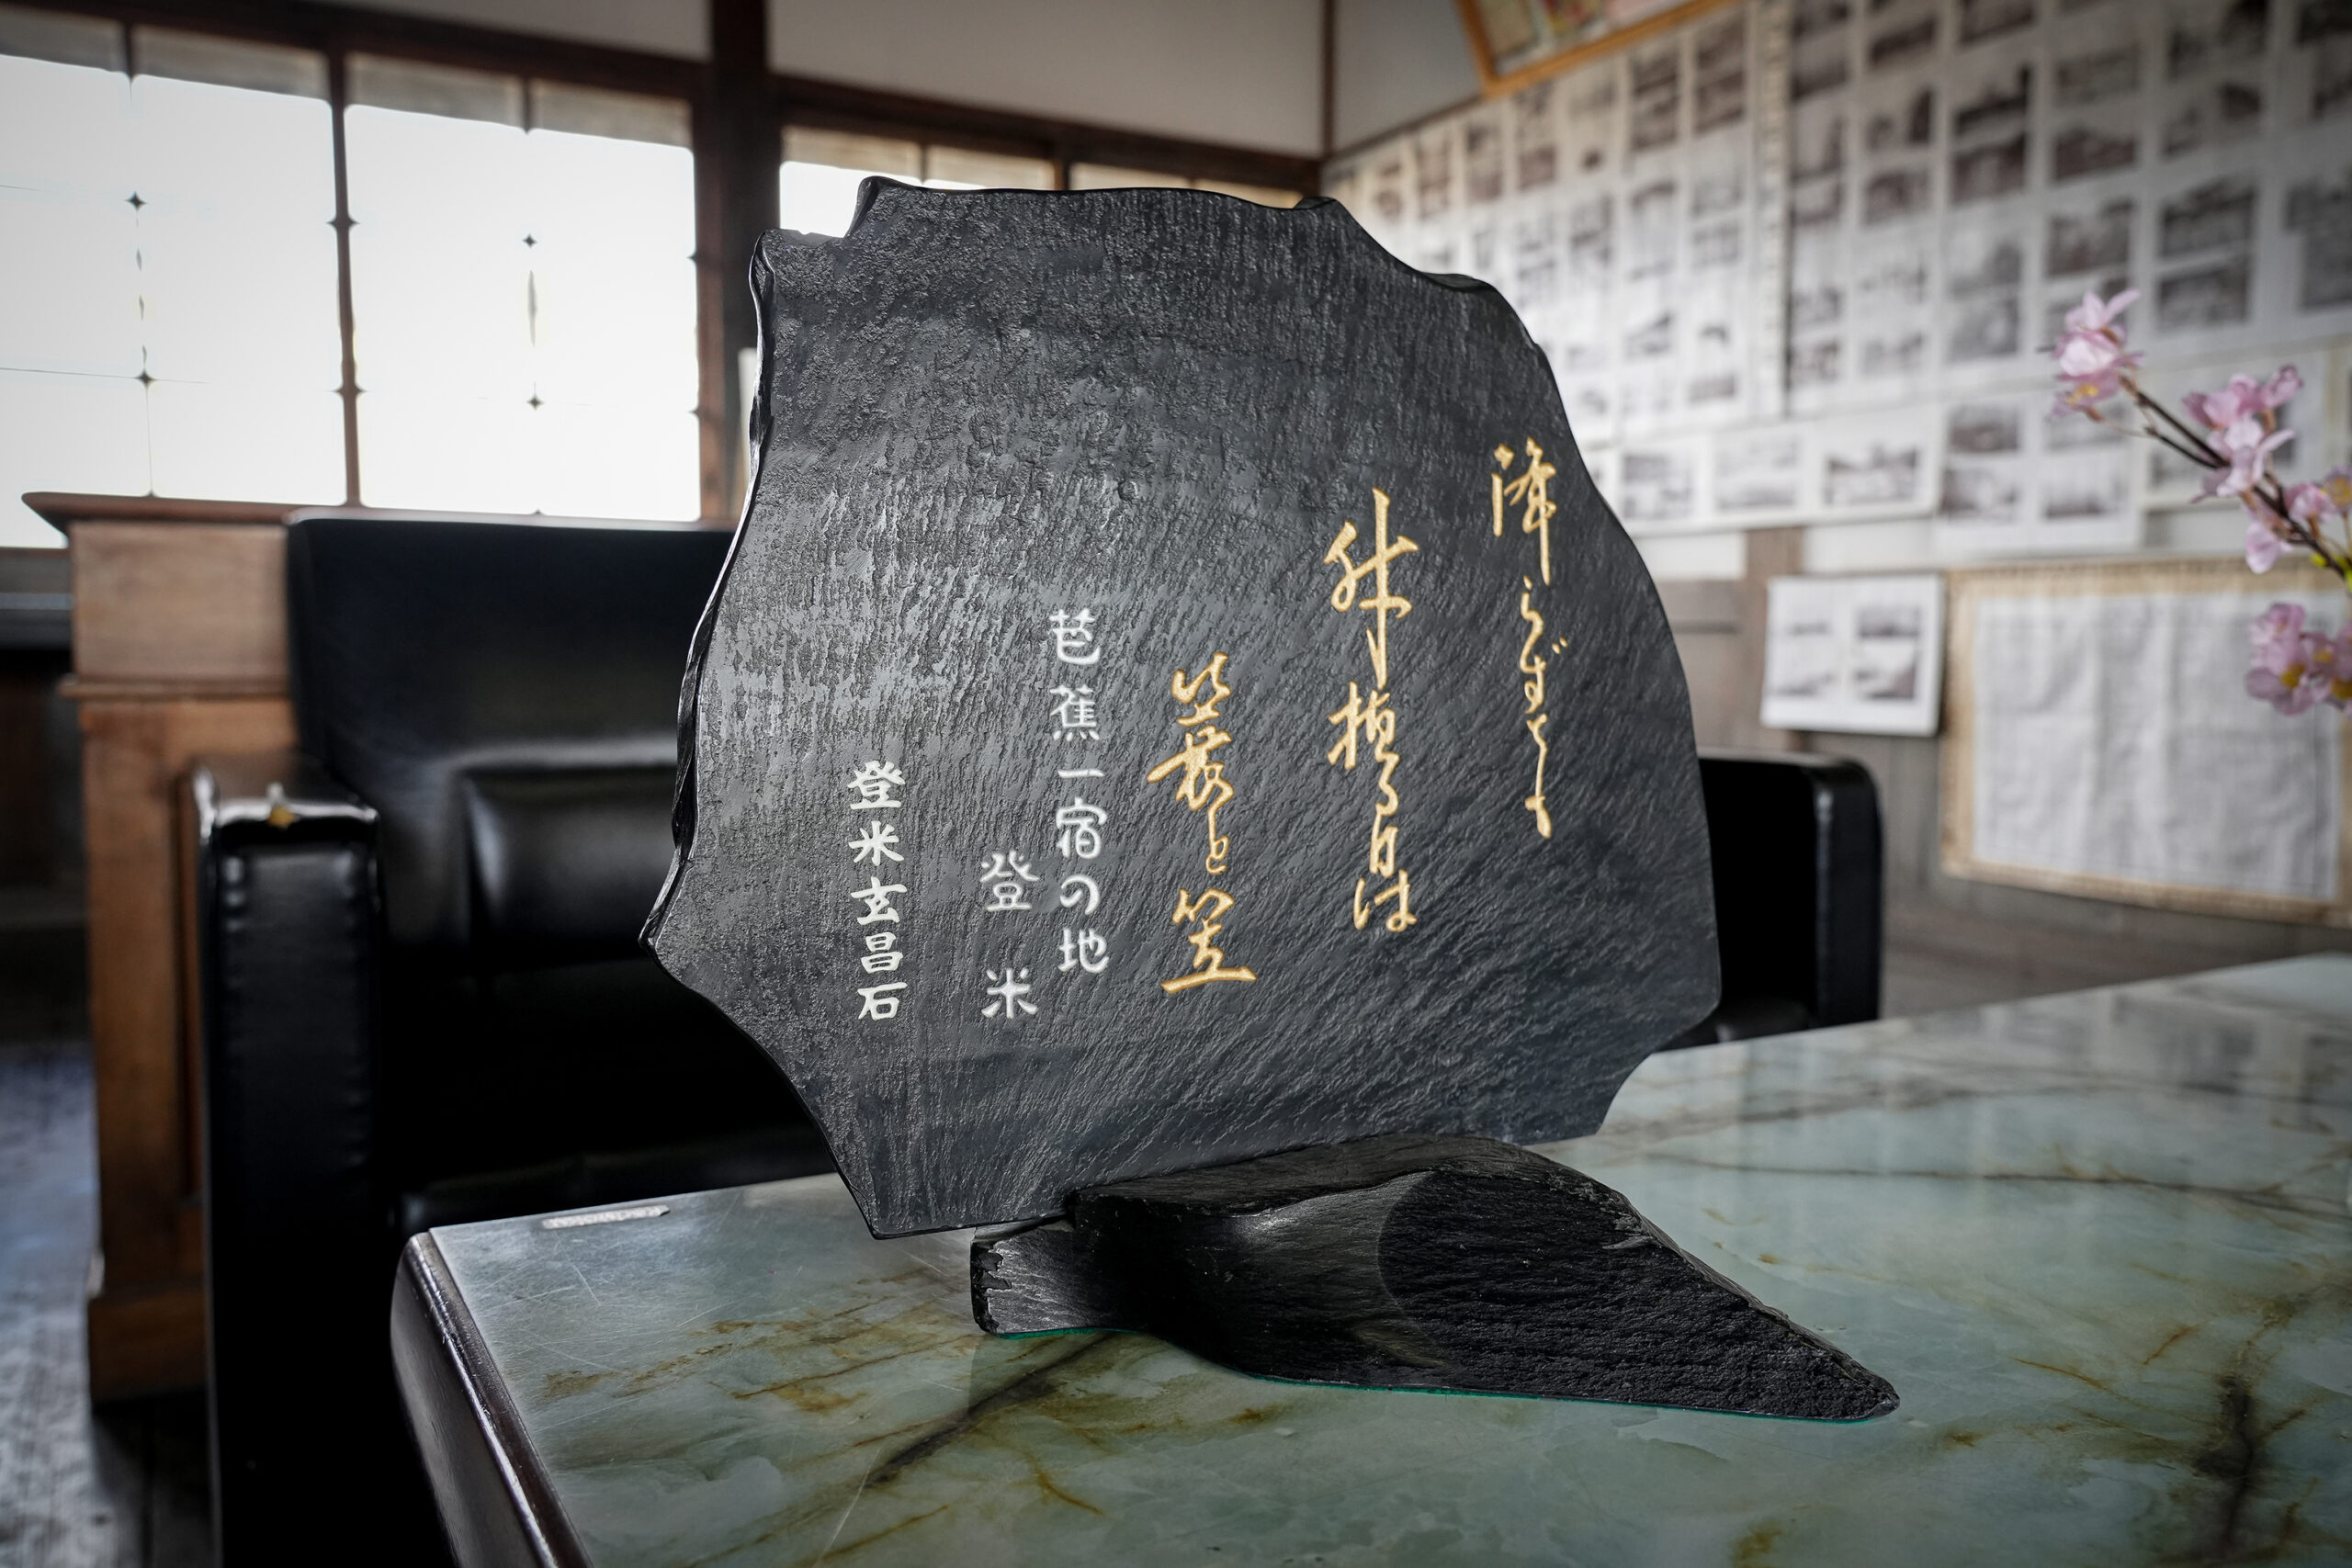 降らずとも
竹植る日は
蓑と笠
芭蕉一宿の地
登米
登米玄昌石